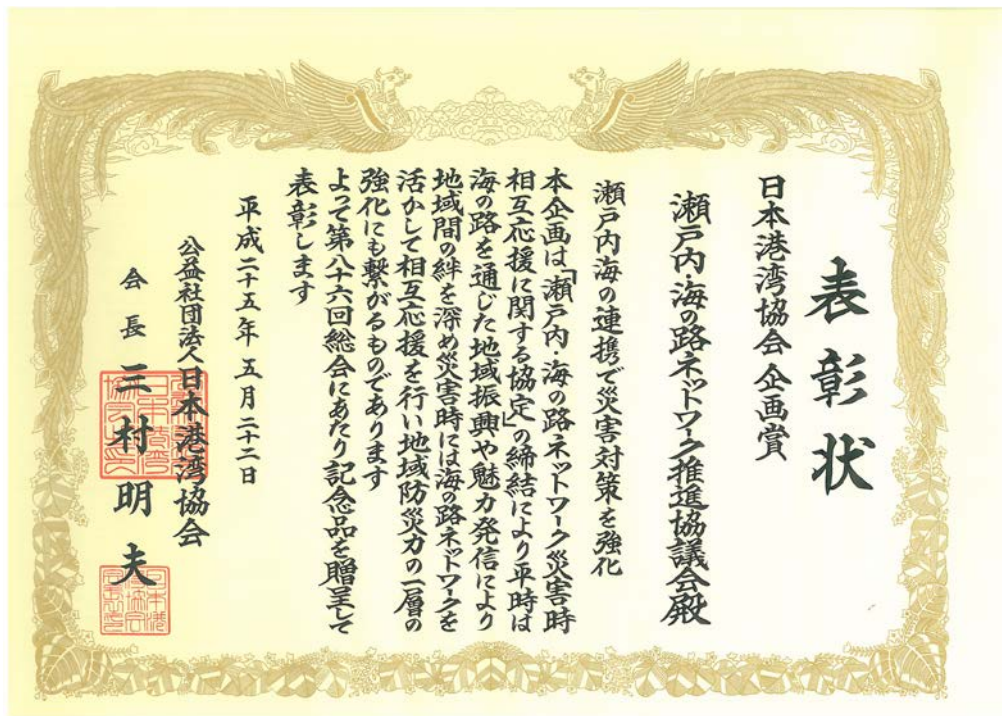 表彰状
日本港湾協会 企画賞
瀬戸内・海の路ネットワーク推進協議会殿
瀬戸内海の連携で災害対策を強化
本企画は「瀬戸内・海の路ネットワーク災害時
相互応援に関する協定」の締結により平時は
海の路を通じた地域振興や魅力発信により
地域間の絆を深め災害時には海の路ネットワークを
活かして相互応援を行い地域防災力の一層の
強化にも繋がるものであります
よって第八十六回総会にあたり記念品を贈呈して
表彰します
平成二十五年 五月二十二日
公益社団法人日本港湾協会
会長 三村明夫